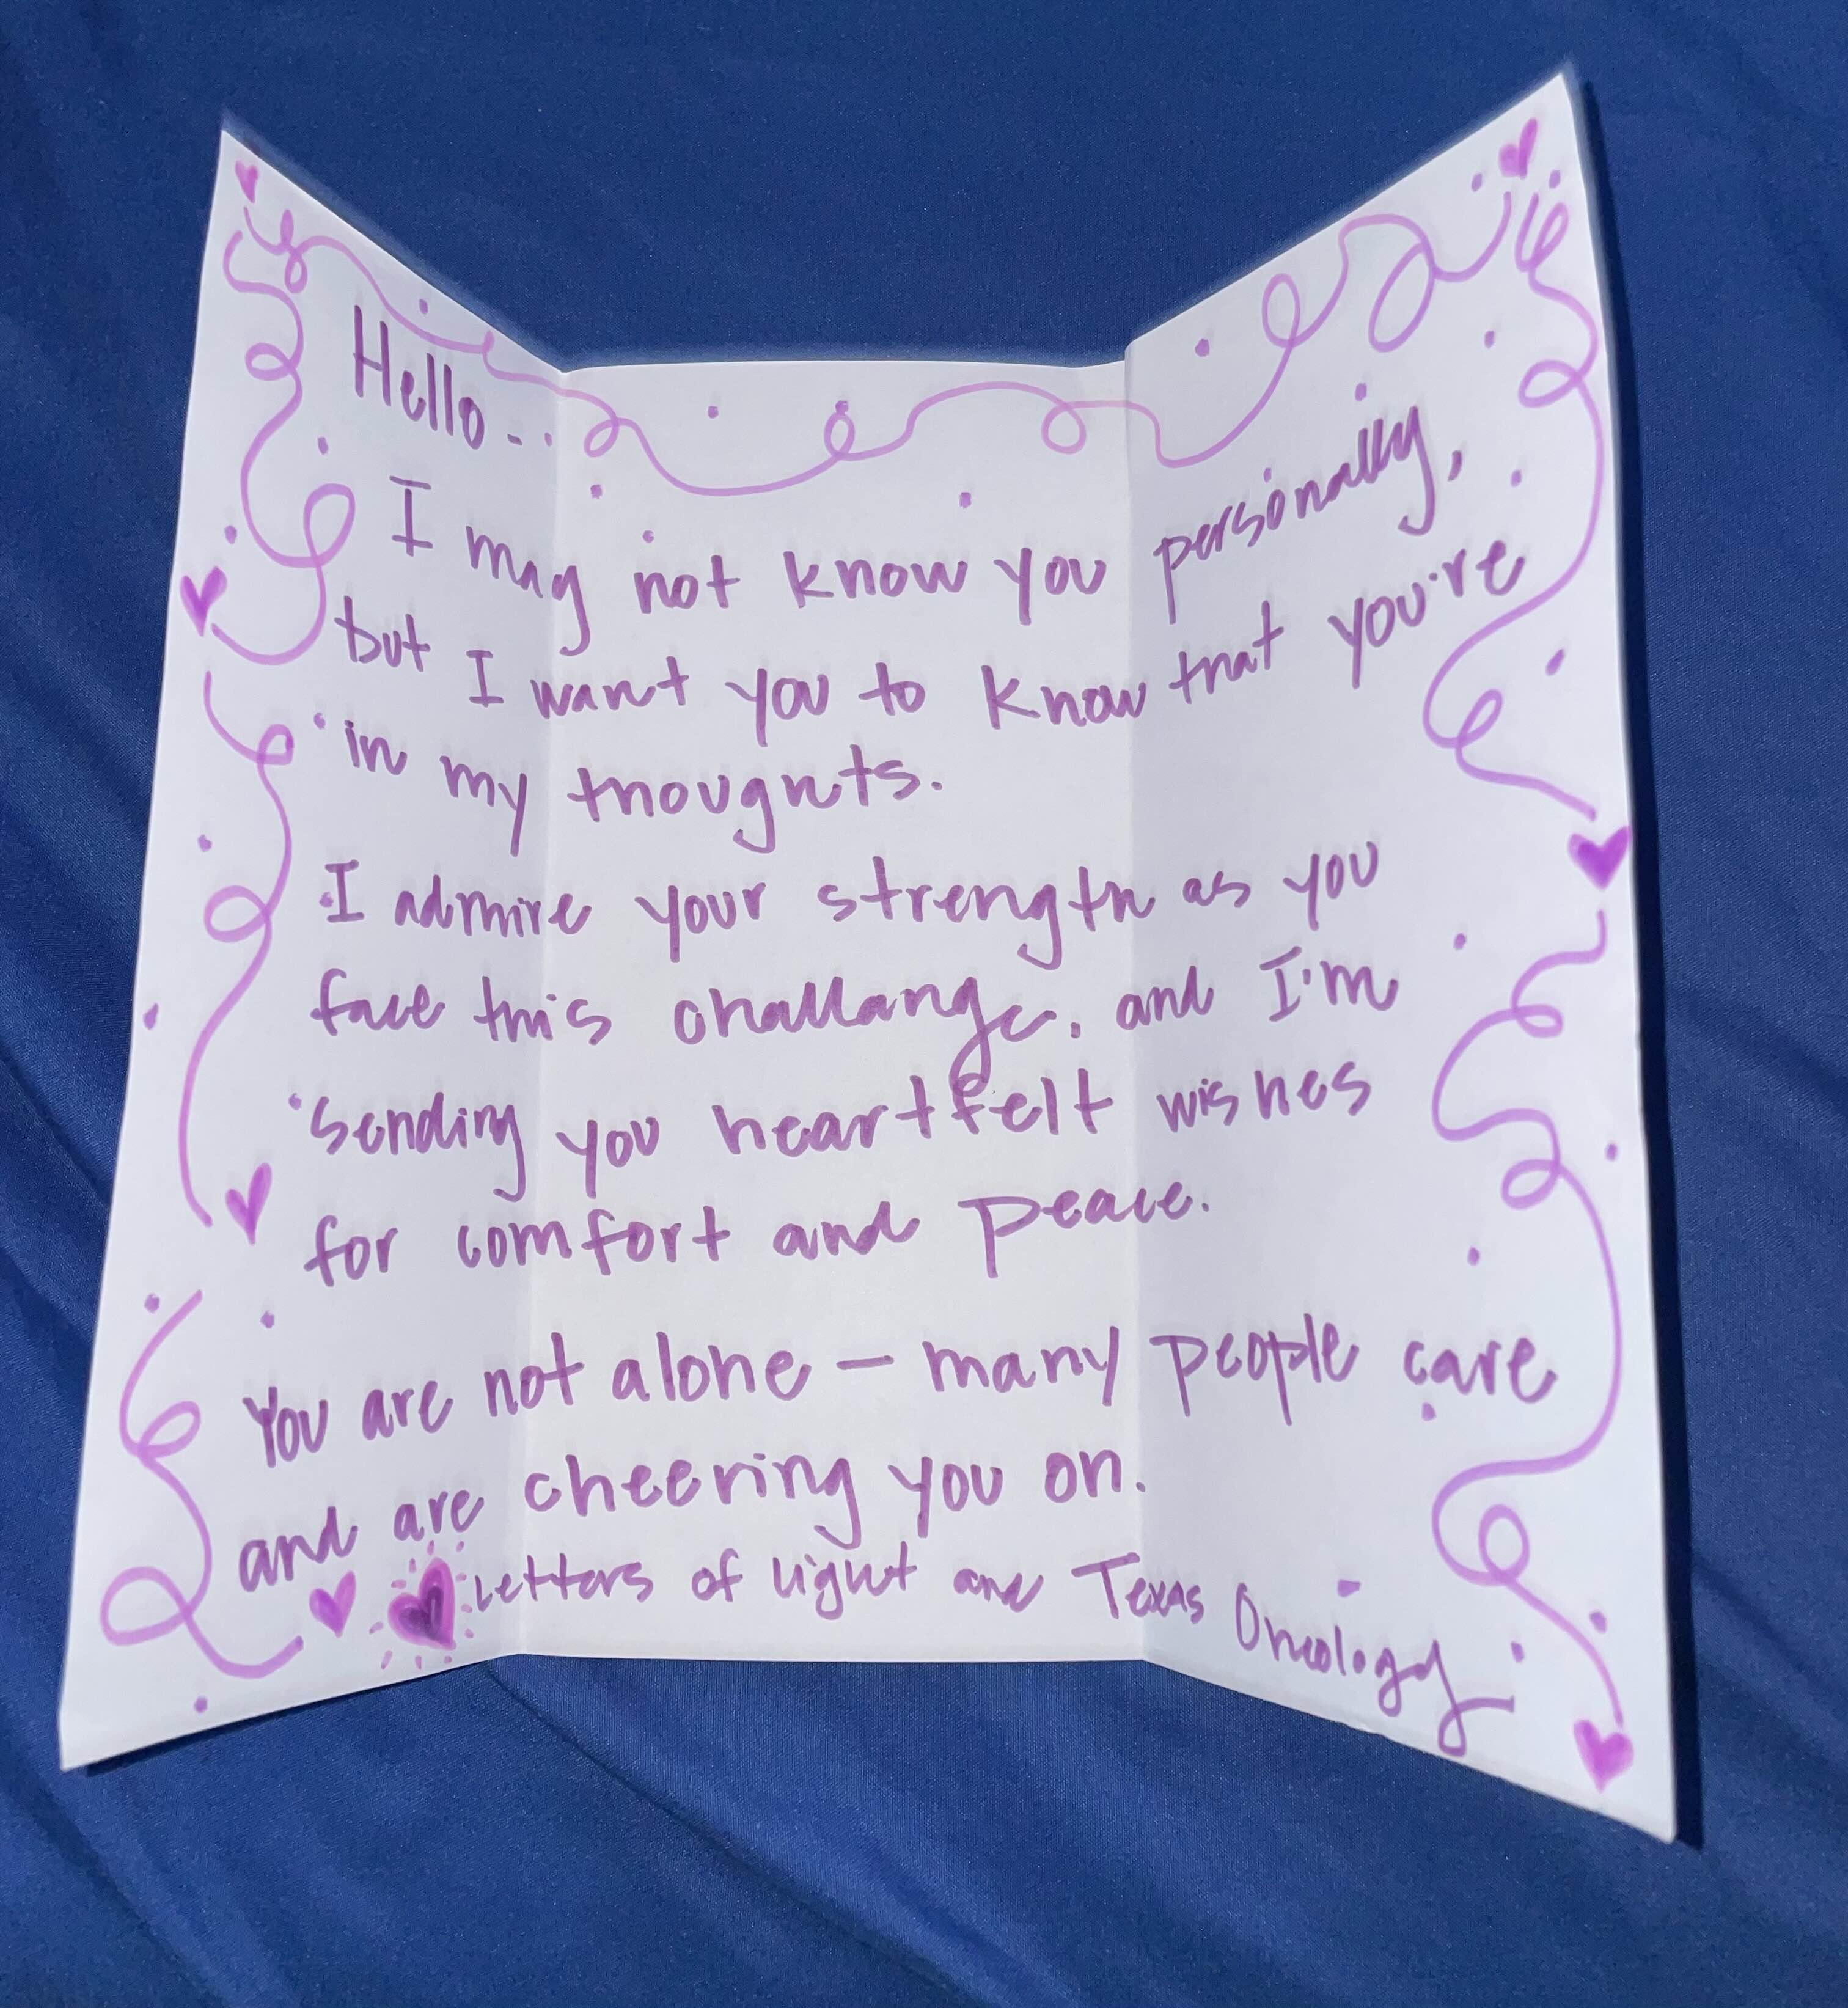 Hello..
I may not know you personally,
but I want you to know that you're
in my thoughts.
I admire your strength as you
face this challange, and I'm
sending you heartfelt wishes
for comfort and peace.
You are not alone – many people care
and are cheering you on.
Letters of Light and Texas Oncology